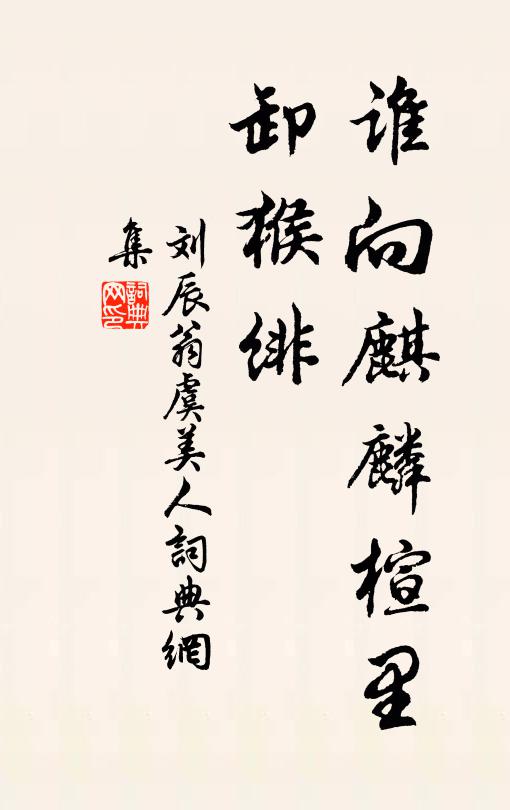 谁向麒麟楦里
卸猴绯
刘辰翁虞美人詞典網
集
詞典网印